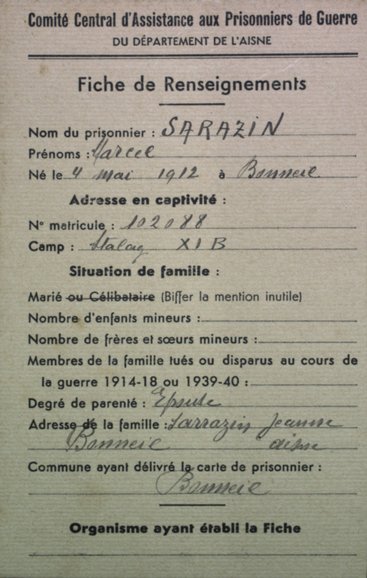 Comité Central d'Assistance aux Prisonniers de Guerre
DU DÉPARTEMENT DE L'AISNE
Fiche de Renseignements
Nom du prisonnier : SARAZIN
Prénoms : Marcel
Né le 4 mai 1912 à Bonneil
Adresse en captivité :
N° matricule : 102088
Camp : Stalag XI B
Situation de famille :
Marié ou Célibataire (Biffer la mention inutile)
Nombre d'enfants mineurs :
Nombre de frères et sœurs mineurs :
Membres de la famille tués ou disparus au cours de
la guerre 1914-18 ou 1939-40 :
Degré de parenté :
Adresse de la famille : Sarrazin Jeanne
Bonneil aisne
Commune ayant délivré la carte de prisonnier :
Bonneil
Organisme ayant établi la Fiche